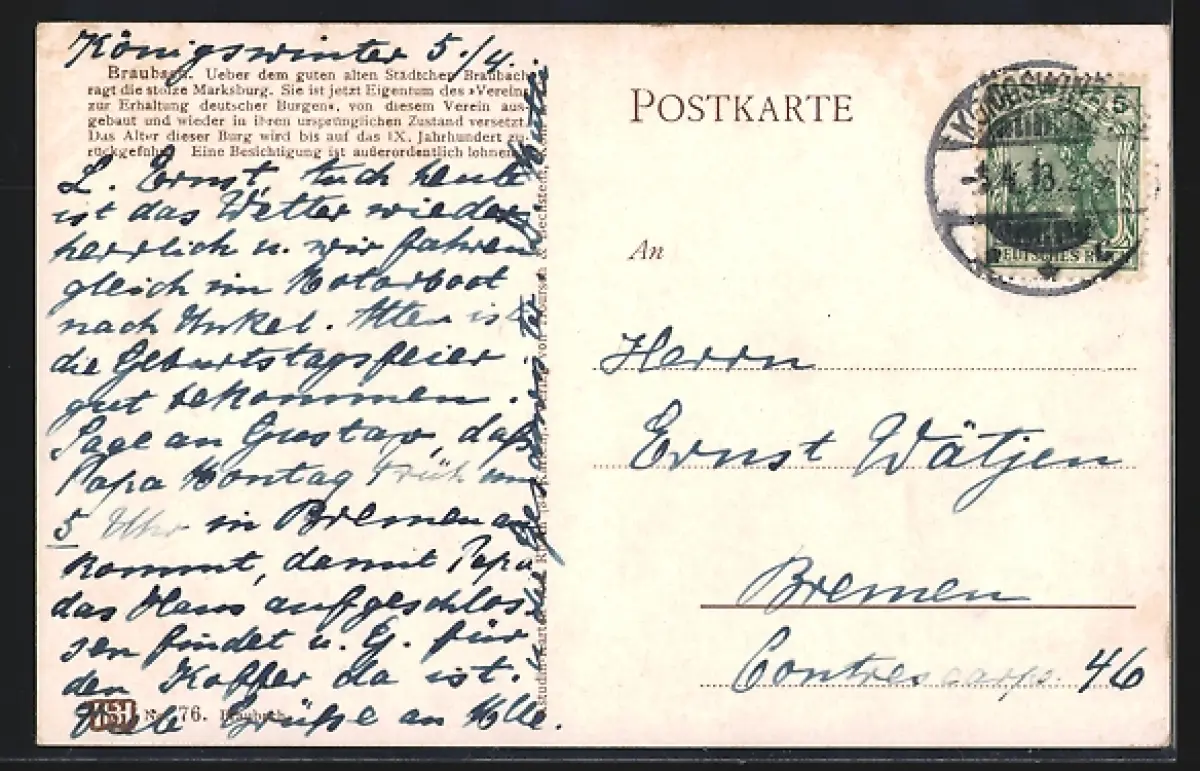 Königswinter 5./4.
Braubach. Ueber dem guten alten Städtchen Braubach
ragt die stolze Marksburg. Sie ist jetzt Eigentum des »Vereins
zur Erhaltung deutscher Burgen«, von diesem Verein aus-
gebaut und wieder in ihren ursprünglichen Zustand versetzt.
Das Alter dieser Burg wird bis auf das IX. Jahrhundert zu-
rückgeführt. Eine Besichtigung ist außerordentlich lohnend.
L. Ernst, auch heute
ist das Wetter wieder
herrlich u. wir fahren
gleich im Motorboot
nach Unkel. Allen ist
die Geburtstagsfeier
gut bekommen.
Sage an Gustav, daß
Papa Montag früh um
5 Uhr in Bremen an
kommt, damit Papa
das Haus aufgeschlos-
sen findet u. G. für
den Koffer da ist.
Viele Grüße an Alle.
Nr. 76. Braubach
POSTKARTE
An
Herrn
Ernst Wätjen
Bremen
Contrescarpe 46
KOENIGSWINTER
5.4.13.
5
DEUTSCHES REICH